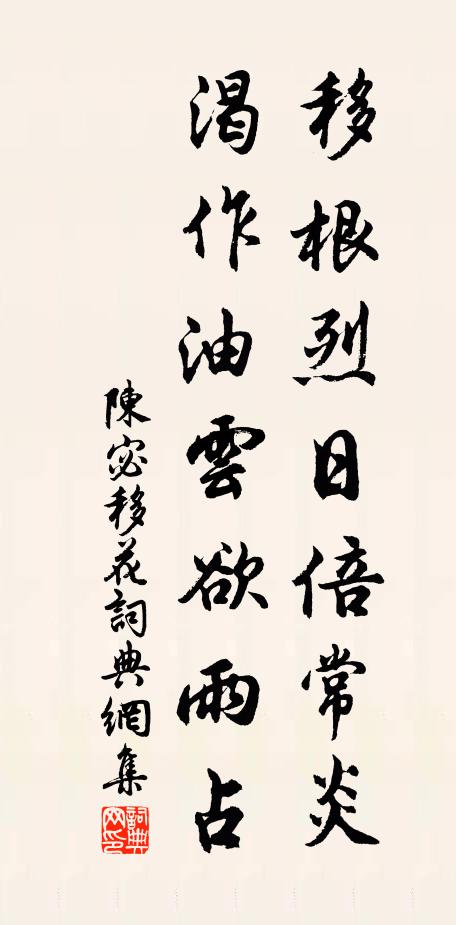 移根烈日倍常炎
渴作油雲欲雨占
陳宓移花詞典網集
詞典网印